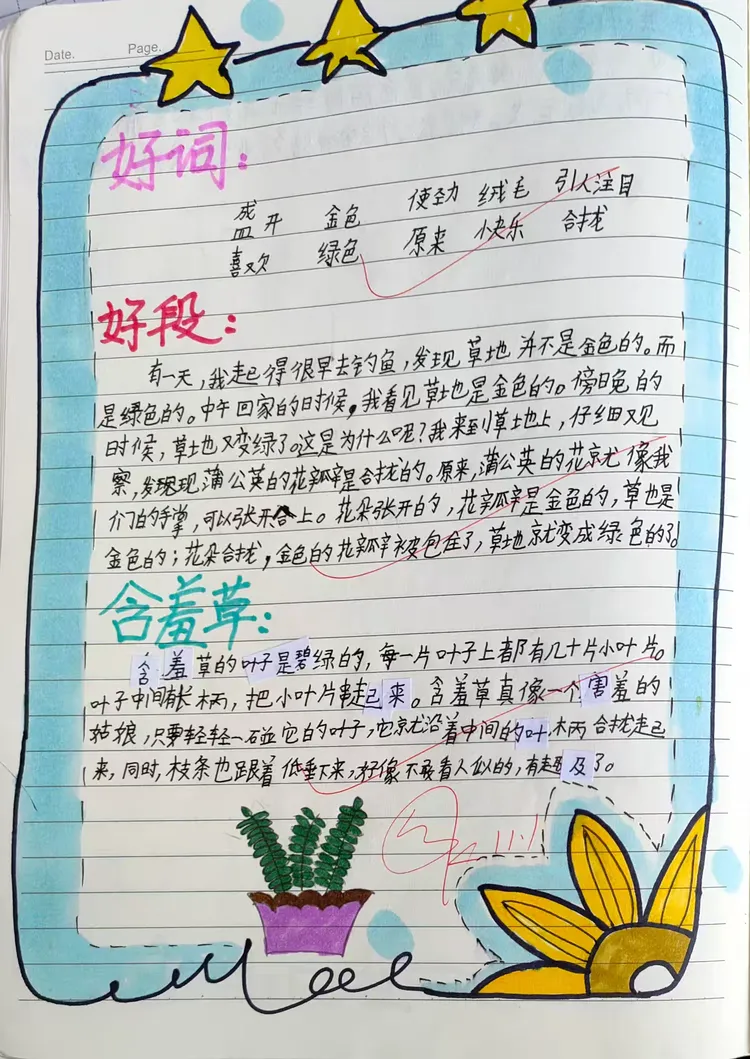 Date. Page.
好词：
盛开 金色 使劲 绒毛 引人注目
喜欢 绿色 原来 快乐 合拢
好段：
有一天，我起得很早去钓鱼，发现草地并不是金色的。而
是绿色的。中午回家的时候，我看见草地是金色的。傍晚的
时候，草地又变绿了。这是为什么呢？我来到草地上，仔细观
察，发现蒲公英的花瓣是合拢的。原来，蒲公英的花就像我
们的手掌，可以张开合上。花朵张开的，花瓣是金色的，草地是
金色的；花朵合拢，金色的花瓣被包住了，草地就变成绿色的了。
含羞草：
含羞草的叶子是碧绿的，每一片叶子上都有几十片小叶片。
叶子中间有长柄，把小叶片串起来。含羞草真像一个害羞的
姑娘，只要轻轻一碰它的叶子，它就沿着中间的叶柄合拢起
来，同时，枝条也跟着低垂下来，好像不敢看人似的，有趣及了。
11.1